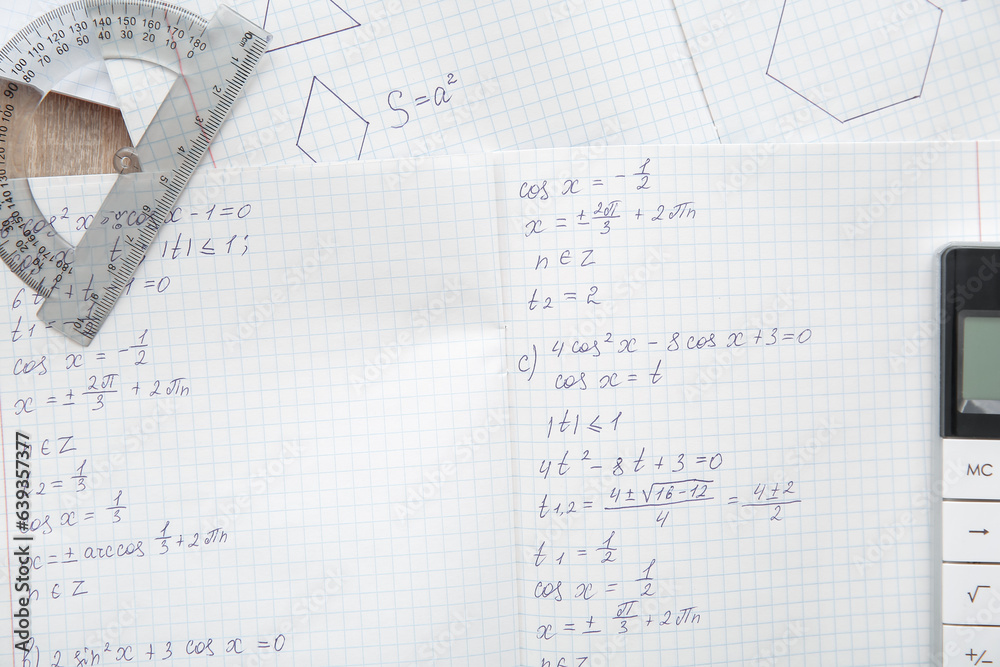 S = a²
cos² x cos x - 1 = 0
t |t| ≤ 1;
6t + t 1 = 0
t₁ =
cos x = - 1/2
x = ± 2π/3 + 2πn
∈ Z
2 = 1/3
cos x = 1/3
x = ± arccos 1/3 + 2πn
n ∈ Z
2 sin² x + 3 cos x = 0
cos x = - 1/2
x = ± 2π/3 + 2πn
n ∈ Z
t₂ = 2
c) 4 cos² x - 8 cos x + 3 = 0
cos x = t
|t| ≤ 1
4t² - 8t + 3 = 0
t₁,₂ = (4 ± √(16 - 12))/4 = (4 ± 2)/2
t₁ = 1/2
cos x = 1/2
x = ± π/3 + 2πn
n ∈ Z
MC
→
√
+/−
Adobe Stock | #639357377